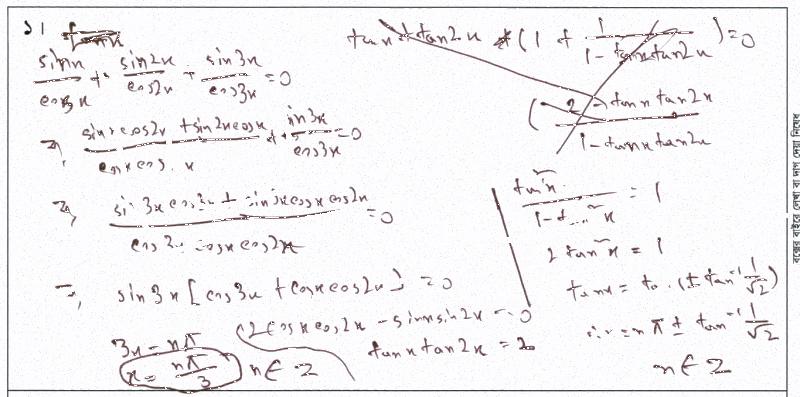 ১।
sin x / cos x + sin2x / cos2x + sin3x / cos3x = 0
⇒, sinx cos2x + sin2x cosx / cosx cos x + sin3x / cos3x = 0
⇒, sin3x cos3x + sin3x cosx cos2x / cos3x cosx cos2x = 0
⇒, sin3x [cos3x + cosx cos2x] = 0
3x = nπ
x = nπ/3 n ∈ Z
(2cosx cos2x - sinx sin2x = 0
tanx tan2x = 2
tanx + tan2x (1 + 1 / 1 - tanx tan2x) = 0
(2 - tanx tan2x / 1 - tanx tan2x
tan²x / 1 - tan²x = 1
2 tan²x = 1
tanx = tan (± tan⁻¹ 1/√2)
x = nπ ± tan⁻¹ 1/√2
n ∈ Z
বক্সের বাইরে লেখা বা দাগ দেয়া নিষেধ